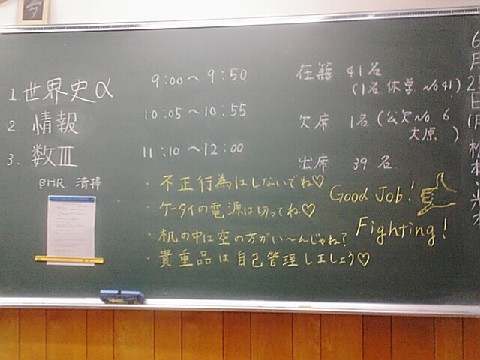 1 世界史α 9:00〜9:50
2 情報 10:05〜10:55
3. 数Ⅲ 11:10〜12:00
SHR 清掃
在籍 41名
(1名休学 No41)
欠席 1名(公欠No.6
大原)
出席 39名
・不正行為はしないでね♡
・ケータイの電源は切ってね♡
・机の中は空の方がい〜んじゃね?
・貴重品は自己管理しましょう♡
Good Job!
Fighting!
6月2
日